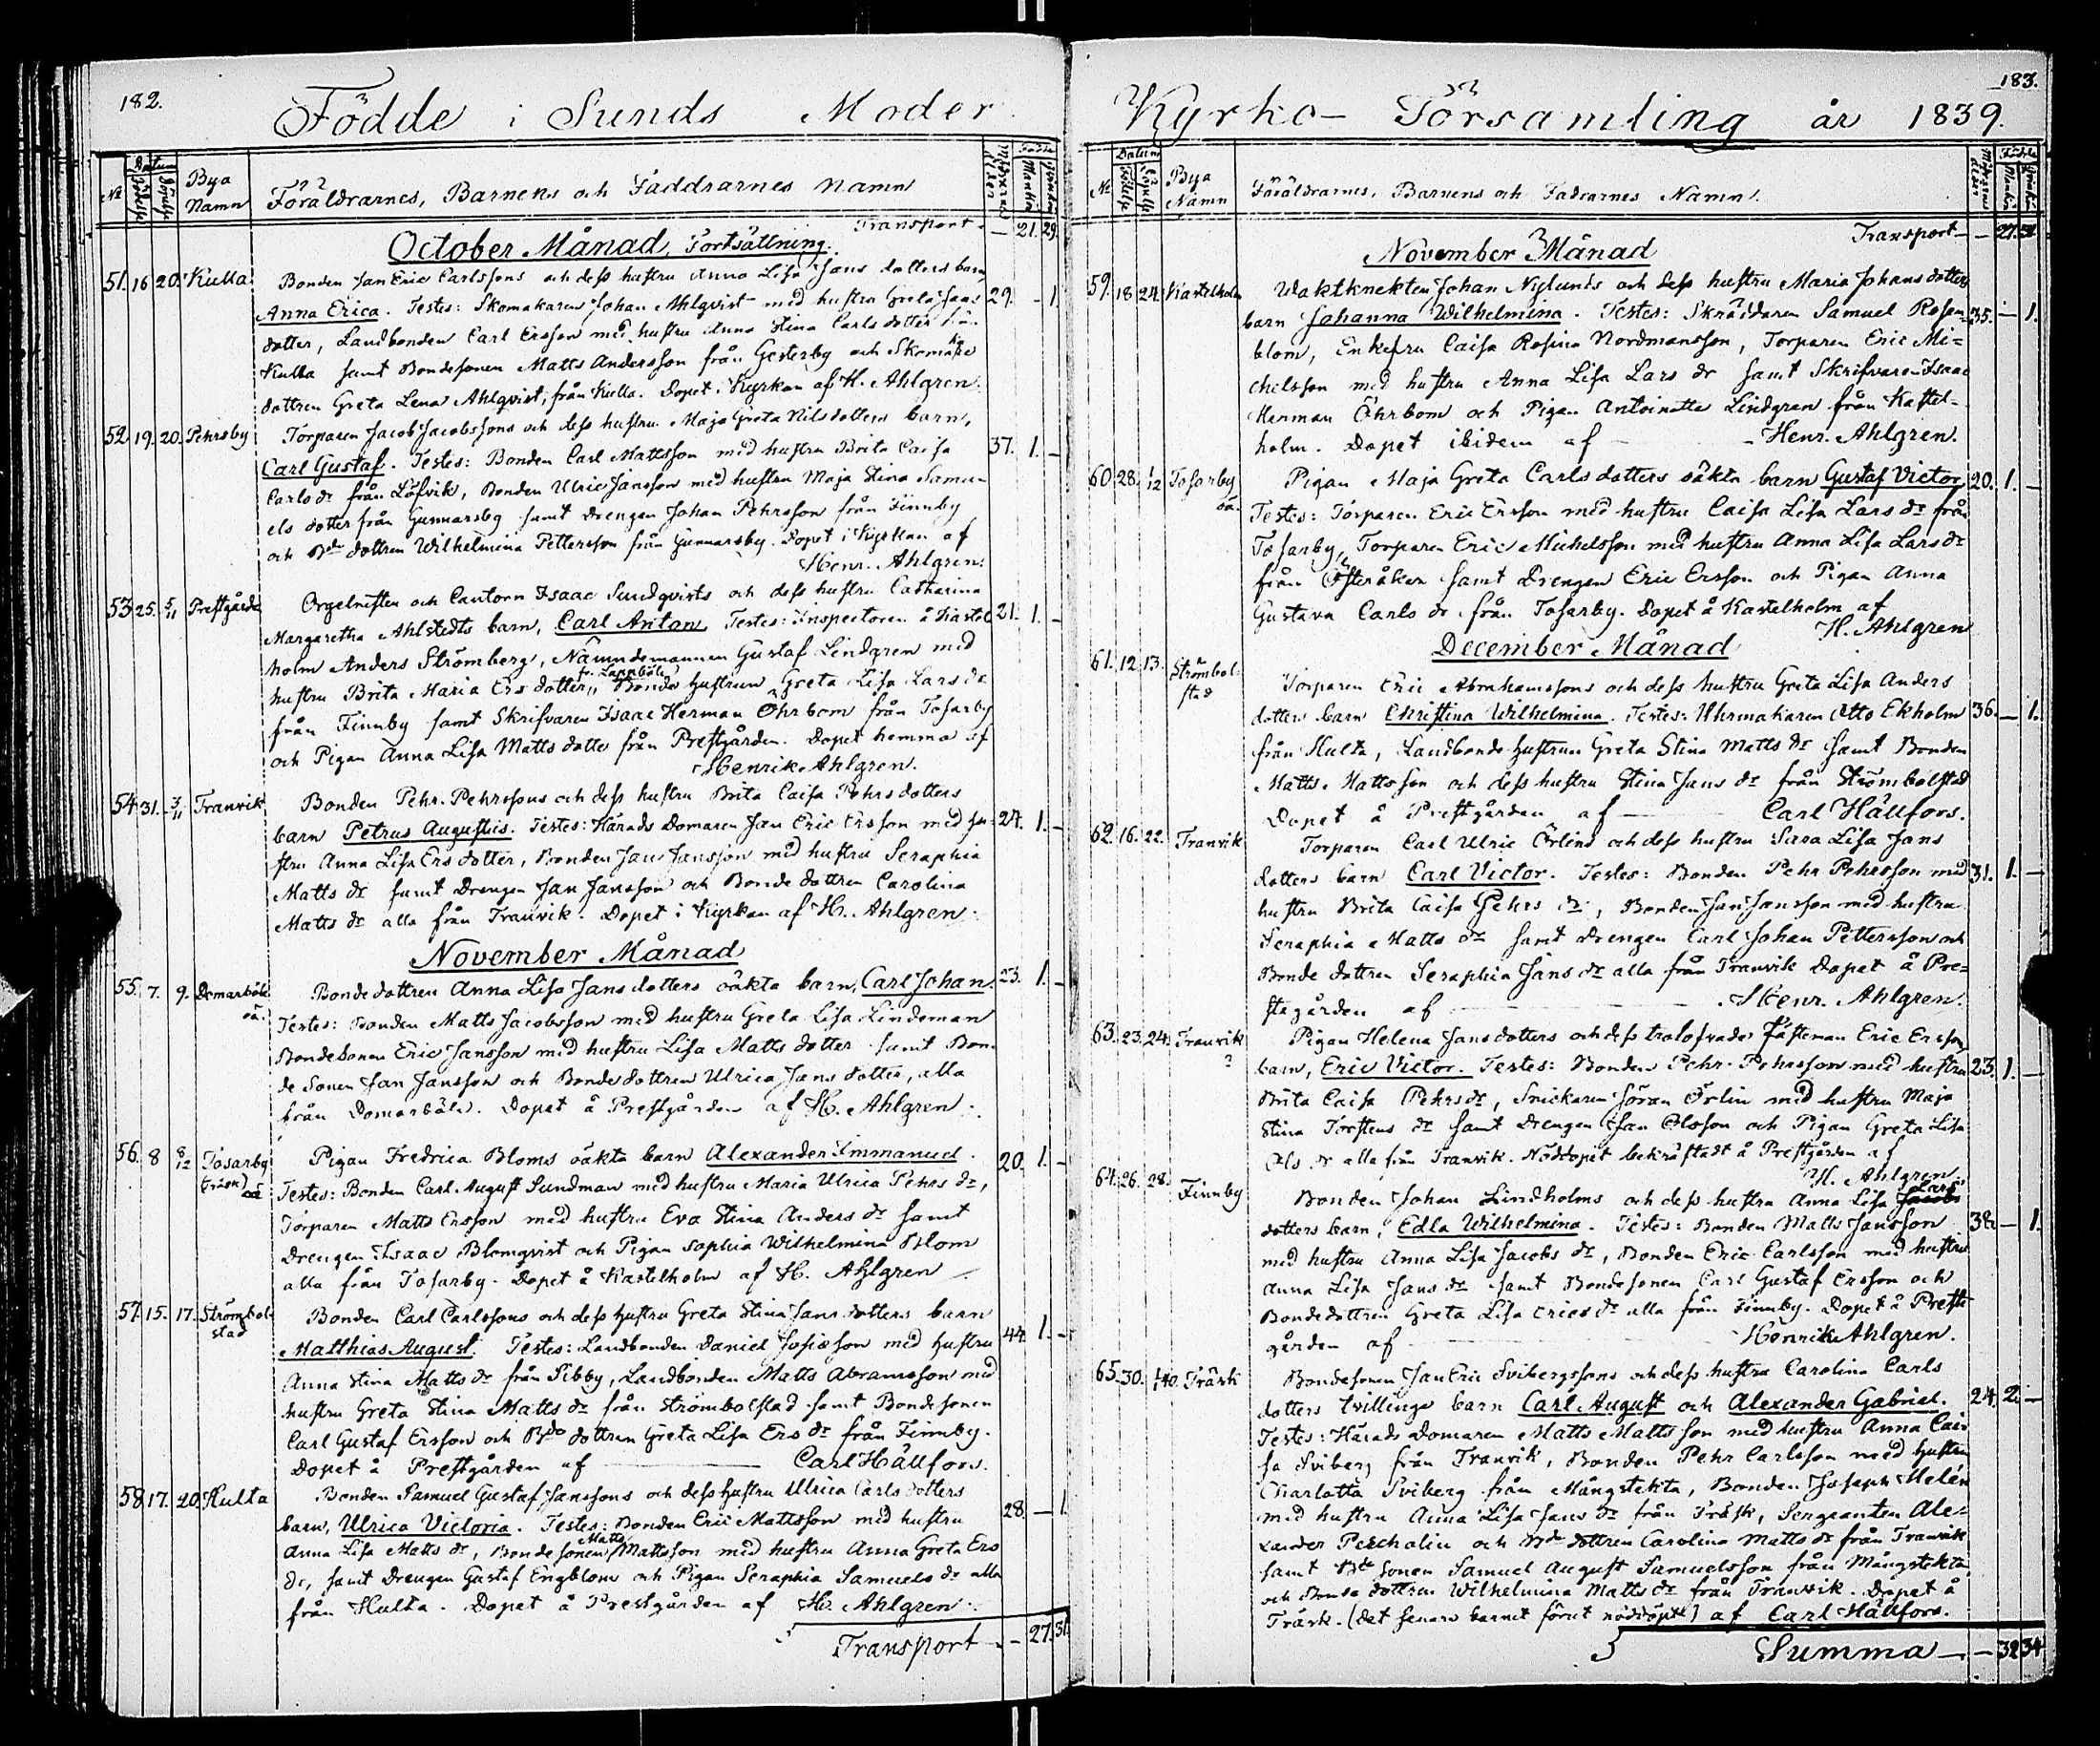 182.
Födde i Sunds Moder
No
Datum
Födelse
Döpelse
Bya Namn
Föräldrarnes, Barnens och Faddrarnes Namn
Mödrarnes ålder
Födde
Mankön
Qvinkön
Transport - — 21. 29.
October Månad, Fortsättning.
51. 16 20. Kulla Bonden Jan Eric Carlssons och dess hustru Anna Lisa Jans dotters barn,
Anna Erica. Testes: Skomakaren Johan Ahlqvist med hustru Greta Jans 29. - 1.
dotter, Landbonden Carl Ersson med hustru Anna Stina Carls dotter från
Kulla samt Bondesonen Matts Andersson från Gesterby och Skomakare
dottren Greta Lena Ahlqvist, från Kulla. Döpt i Kyrkan af H. Ahlgren.
52. 19. 20. Pehrsby Torparen Jacob Jacobssons och dess hustru Maja Greta Nils dotters barn,
Carl Gustaf. Testes: Bonden Carl Mattsson med hustru Brita Caisa 37. 1. -
Carls dr från Löfvik, Bonden Ulric Jansson med hustru Maja Stina Samu-
els dotter från Gunnarsby samt Drengen Johan Pehrsson från Finnby
och Bde dottren Wilhelmina Pettersson från Gunnarsby. Döpt i Kyrkan af
Henr. Ahlgren.
53. 25. 5/11 Prestgården Orgelnisten och Cantorn Isaac Sundqvists och dess hustru Catharina
Margaretha Ahlstedts barn, Carl Anton. Testes: Inspectoren å Kastel- 21. 1. -
holm Anders Strömberg, Nämndemannen Gustaf Lindgren med
hustru Brita Maria Ers dotter, fr. Lannböle Bonde hustrun Greta Lisa Lars dr
från Finnby samt Skrifvaren Isaac Herman Öhrbom från Tosarby
och Pigan Anna Lisa Matts dotter från Prestgården. Döpt hemma af
Henrik Ahlgren.
54. 31. 3/11 Tranvik Bonden Pehr Pehrssons och dess hustru Brita Caisa Pehrs dotters
barn Petrus Augustus. Testes: Härads Domaren Jan Eric Ersson med hu- 27. 1. -
stru Anna Lisa Ers dotter, Bonden Jan Jansson med hustru Seraphia
Matts dr samt Drengen Jan Jansson och Bonde dottren Carolina
Matts dr alla från Tranvik. Döpt i Kyrkan af H. Ahlgren.
November Månad
55. 7. 9. Domarböle oä. Bonde dottren Anna Lisa Jans dotters oäkta barn, Carl Johan. 23. 1. -
Testes: Bonden Matts Jacobsson med hustru Greta Lisa Lindeman
Bondesonen Eric Jansson med hustru Lisa Matts dotter samt Bon-
de Sonen Jan Jansson och Bonde dottren Ulrica Jans dotter, alla
från Domarböle. Döpt å Prestgården af H. Ahlgren.
56. 8 8/12 Tosarby (träsk) oä Pigan Fredrica Bloms oäkta barn Alexander Immanuel. 20. 1. -
Testes: Bonden Carl August Sundman med hustru Maria Ulrica Pehrs dr,
Torparen Matts Ersson med hustru Eva Stina Anders dr samt
Drengen Isaac Blomqvist och Pigan Sophia Wilhelmina Blom
alla från Tosarby. Döpt å Kastelholm af H. Ahlgren
57. 15. 17. Strömbolstad Bonden Carl Carlssons och dess hustru Greta Stina Jans dotters barn
Matthias August. Testes: Landbonden Daniel Josiesson med hustru 44. 1. -
Anna Stina Matts dr från Sibby, Landbonden Matts Abramsson med
hustru Greta Stina Matts dr från Strömbolstad samt Bondesonen
Carl Gustaf Ersson och Bde dottren Greta Lisa Ers dr från Finnby.
Döpt å Prestgården af — Carl Hällfors.
58. 17. 20. Hulta Bonden Samuel Gustaf Janssons och dess hustru Ulrica Carls dotters
barn, Ulrica Victoria. Testes: Bonden Eric Mattsson med hustru 28. — 1
Anna Lisa Matts dr, Bondesonen Matts Mattsson med hustru Anna Greta Ers
dr, samt Drengen Gustaf Engblom och Pigan Seraphia Samuels dr alla
från Hulta. Döpt å Prestgården af H. Ahlgren.
Transport - - 27. 31.
183.
Kyrko- Församling år 1839.
No
Datum
Födelse
Döpelse
Bya Namn
Föräldrarnes, Barnens och Fadrarnes Namn.
Mödrarnes ålder
Födde
Mankön
Qvinkön
November Månad
Transport - - 27. 31.
59. 18. 24. Kastelholm Waktknekten Johan Nylunds och dess hustru Maria Johans dotters
barn Johanna Wilhelmina. Testes: Skräddaren Samuel Rosen- 35. — 1.
blom, Enkefru Caisa Rosina Nordmansson, Torparen Eric Mi=
chelsson med hustru Anna Lisa Lars dr samt Skrifvaren Isaac
Herman Öhrbom och Pigan Antoinetta Lindgren från Kastel-
holm. Döpt ibidem af - Henr. Ahlgren.
60. 28. 1/12 Tosarby oä. Pigan Maja Greta Carls dotters oäkta barn Gustaf Victor 20. 1. -
Testes: Torparen Eric Ersson med hustru Caisa Lisa Lars dr från
Tosarby, Torparen Eric Michelsson med hustru Anna Lisa Lars dr
från Österåker samt Drengen Eric Ersson och Pigan Anna
Gustava Carls dr från Tosarby. Döpt å Kastelholm af
H. Ahlgren
December Månad
61. 12. 13. Strömbolstad Torparen Eric Abrahamssons och dess hustru Greta Lisa Anders
dotters barn Christina Wilhelmina. Testes: Uhrmakaren Otto Ekholm 36. — 1.
från Hulta, Landbonde hustrun Greta Stina Matts dr samt Bonden
Matts Mattsson och dess hustru Stina Jans dr från Strömbolstad
Döpt å Prestgården af — Carl Hällfors.
62. 16. 22. Tranvik Torparen Carl Ulric Örlins och dess hustru Sara Lisa Jans
dotters barn Carl Victor. Testes: Bonden Pehr Pehrsson med 31. 1. —
hustru Brita Caisa Pehrs dr, Bonden Jan Jansson med hustru
Seraphia Matts dr samt Drengen Carl Johan Pettersson och
Bonde dottren Seraphia Jans dr alla från Tranvik Döpt å Pre=
stgården af Henr. Ahlgren.
63. 23. 24. Tranvik ? Pigan Helena Jans dotters och dess trolofvades Fästeman Eric Ersson
barn, Eric Victor. Testes: Bonden Pehr Pehrsson med hustru 23. 1. —
Brita Caisa Pehrs dr, Snickaren Göran Örlin med hustru Maja
Stina Torstens dr samt Drengen Jan Olsson och Pigan Greta Lisa
Ols dr alla från Tranvik. Nöddopet bekräftadt å Prestgården af
H. Ahlgren.
64. 26. 28. Finnby Bonden Johan Lindholms och dess hustru Anna Lisa Jacobs Lars
dotters barn, Edla Wilhelmina. Testes: Bonden Matts Jansson 38. — 1.
med hustru Anna Lisa Jacobs dr, Bonden Eric Carlsson med hustru
Anna Lisa Jans dr samt Bondesonen Carl Gustaf Ersson och
Bondedottren Greta Lisa Erics dr alla från Finnby. Döpt å Prest-
gården af Henrik Ahlgren.
65. 30. 1/1 40. Träsk Bondesonen Jan Eric Svibergssons och dess hustru Carolina Carls
dotters tvillinge barn Carl August och Alexander Gabriel. 24. 2. —
Testes: Härads Domaren Matts Mattsson med hustru Anna Cai-
sa Sviberg från Tranvik, Bonden Pehr Carlsson med hustru
Charlotta Sviberg från Mångstekta, Bonden Joseph Melén
med hustru Anna Lisa Jans dr från Träsk, Sergeanten Ale-
xander Peschalin och Bde dottren Carolina Matts dr från Tranvik
samt Bde Sonen Samuel August Samuelsson från Mångstekta
och Bonde dottren Wilhelmina Matts dr från Tranvik. Döpt å
Träsk. (det senare barnet förut nöddöpt) af Carl Hällfors.
Summa — — 32 34